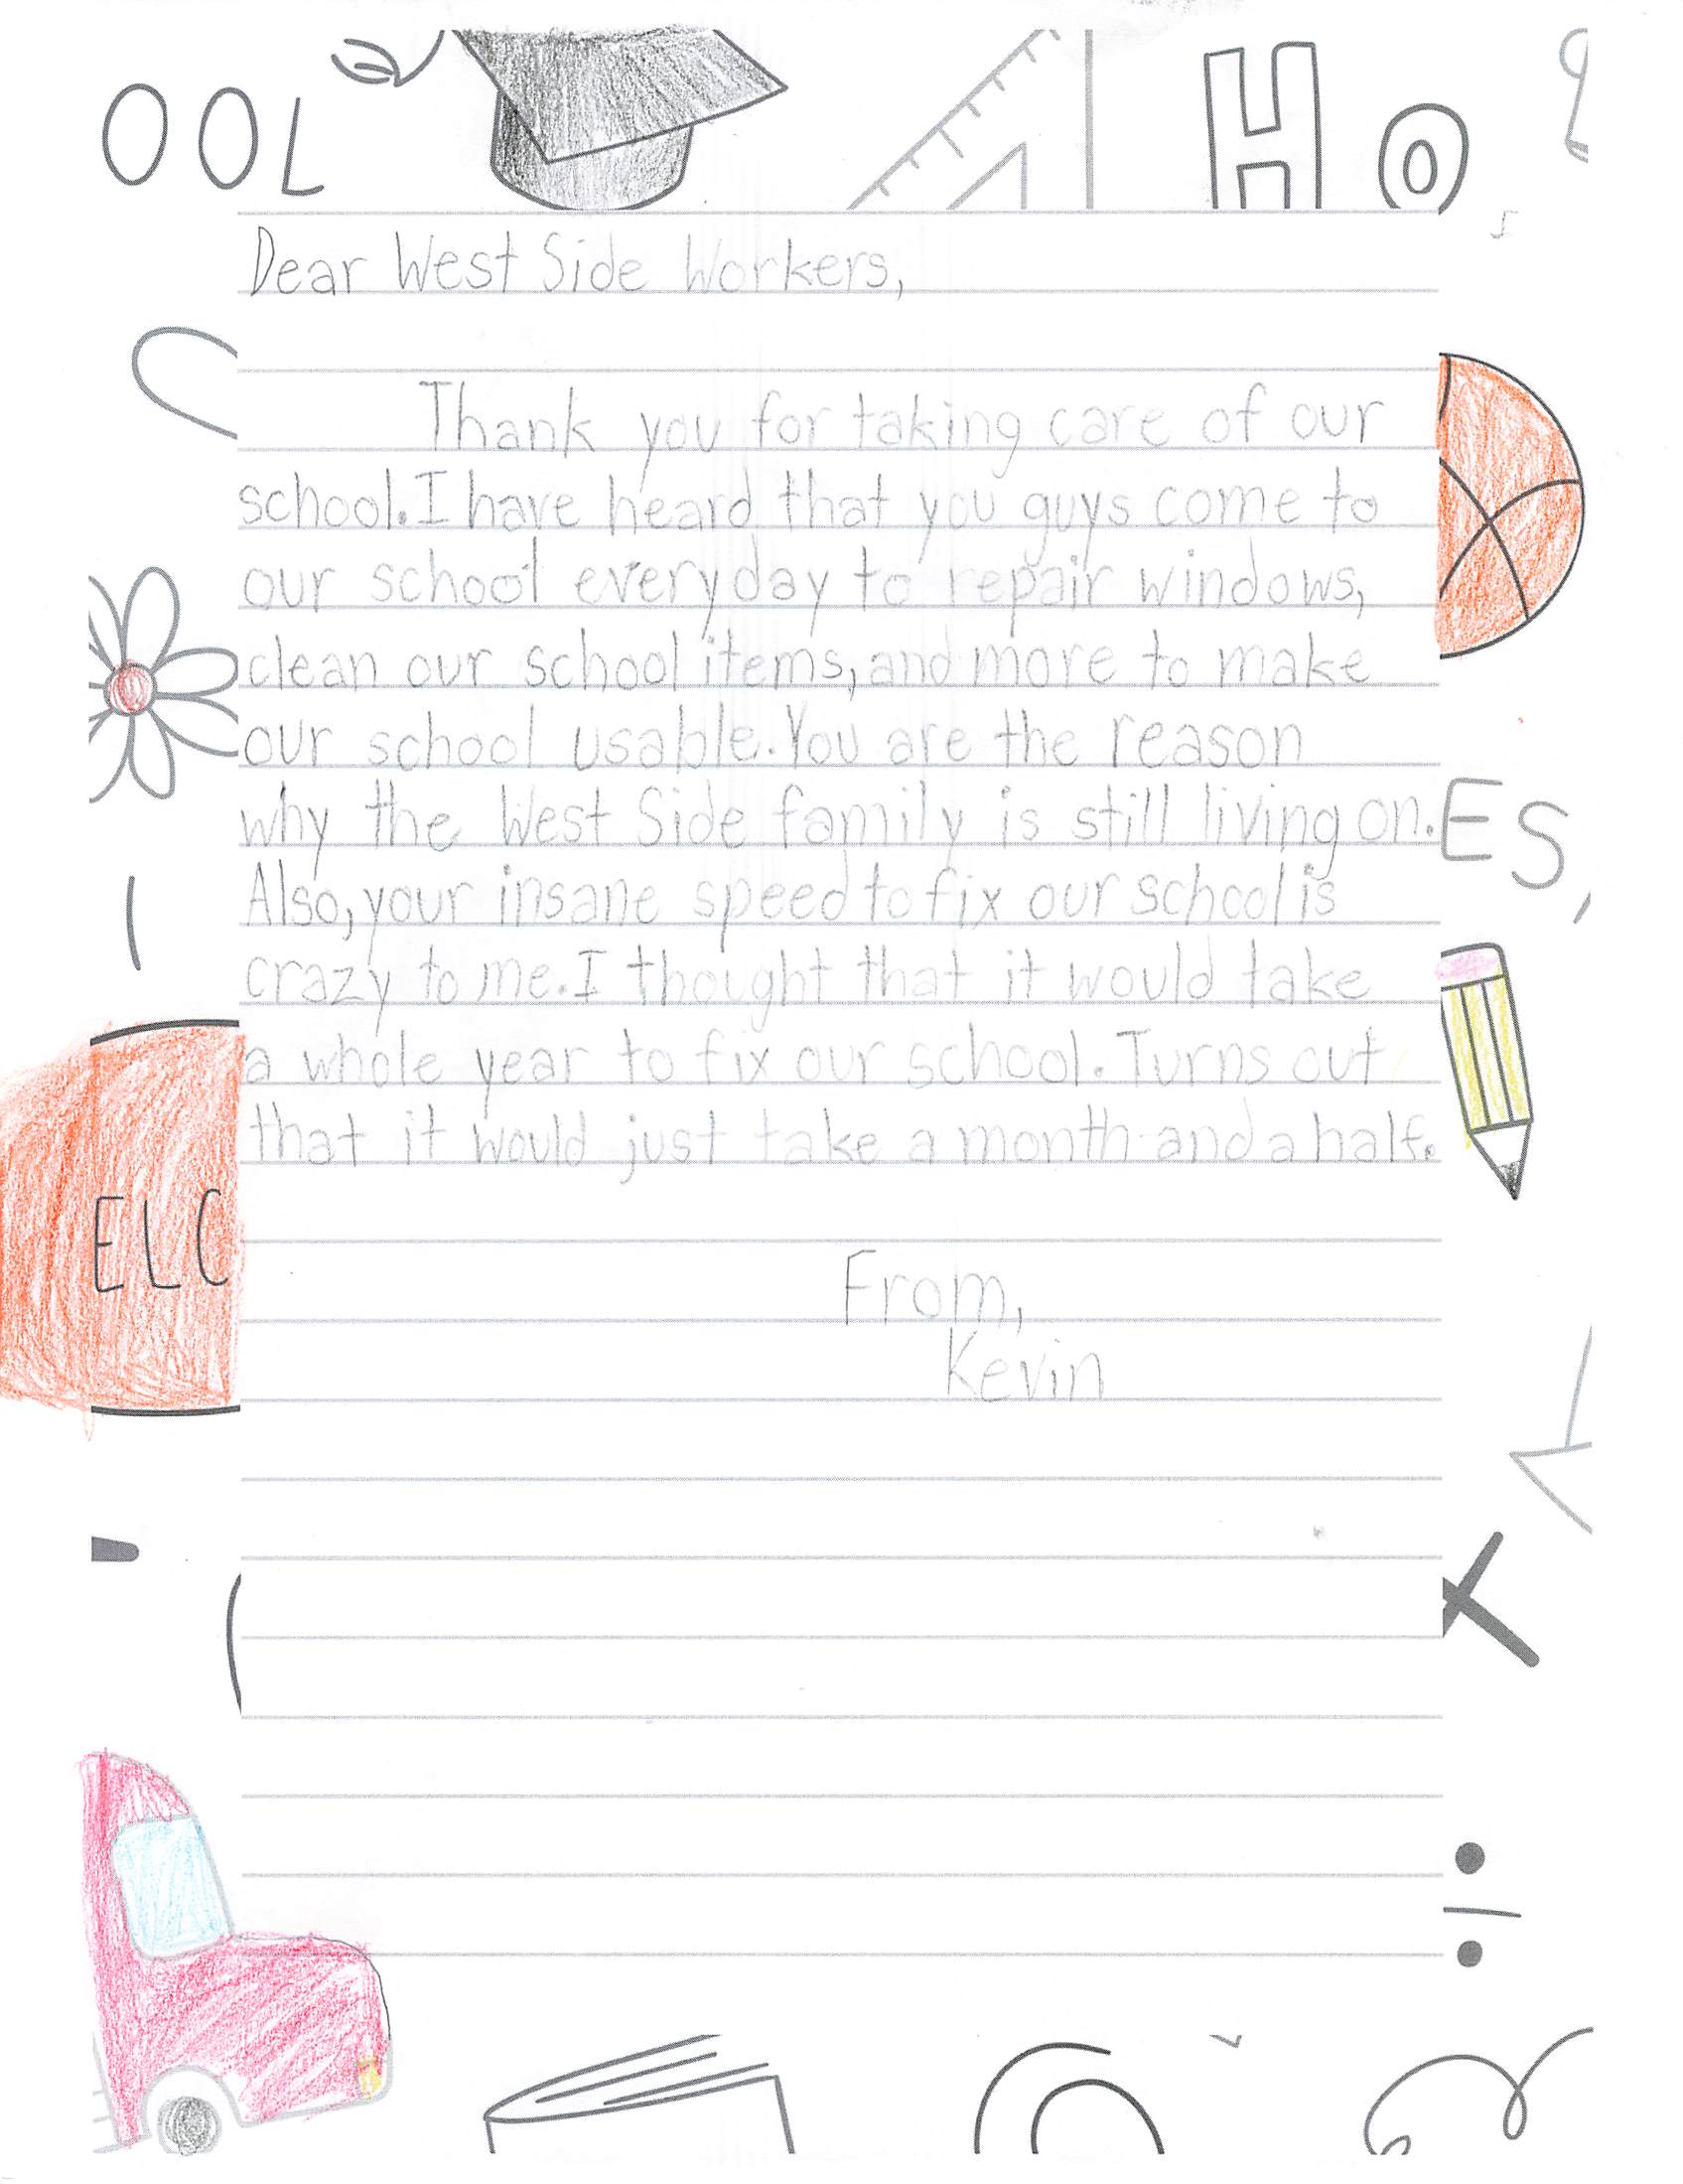 OOL
Ho
Dear West Side Workers,
Thank you for taking care of our
school. I have heard that you guys come to
our school everyday to repair windows,
clean our school items, and more to make
our school usable. You are the reason
why the West Side family is still living on.
ES,
Also, your insane speed to fix our school is
crazy to me. I thought that it would take
a whole year to fix our school. Turns out
that it would just take a month and a half.
ELC
From,
Kevin